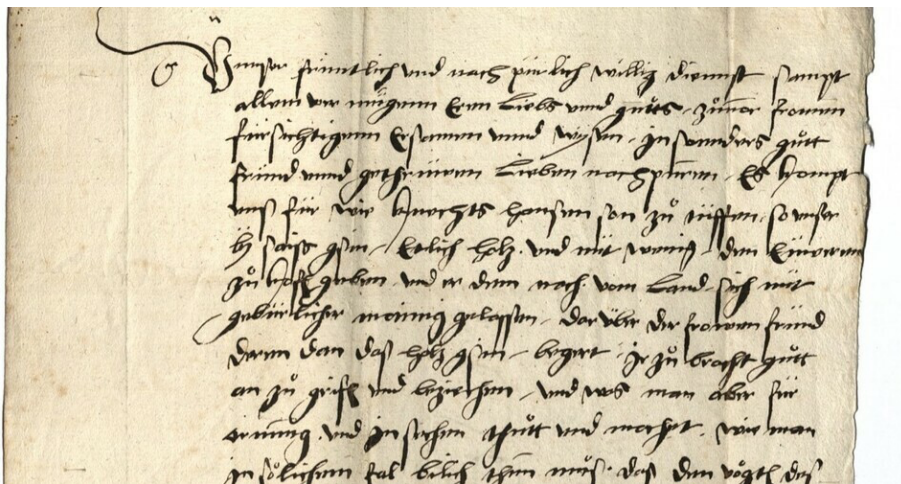 Unnser früntlich und nachpürlich willig dienst sampt
allem wir mügenn Eeren Liebs unnd gůtts zůuor fromen
fürsichtigenn Ersamen unnd wysen, in sonnders gůtt
fründ unnd gethrüwen Lieben nachpuren. Es kompt
unns für wie knechts hansen son zů tüffen, so unser
by säss gsin, Ettlich holz und nit wenig den Eüweren
zů koff geben und er dem nach vom Land sich mit
gebürlicher meinung gelassen, dar über der frowen fründ
deren dan das holz gsin, begert, Ir zů bracht gůtt
an zů griffen und beziechen, und was man aber für
ornung und In sechen thůtt und machet, wie man
In sölichem fal bilich thůn můs, das den vögten des